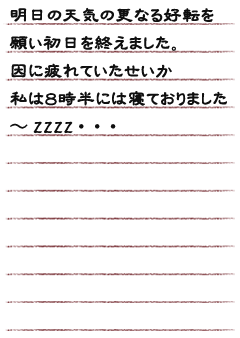 明日の天気の更なる好転を
願い初日を終えました。
因に疲れていたせいか
私は8時半には寝ておりました
～ZZZZ・・・